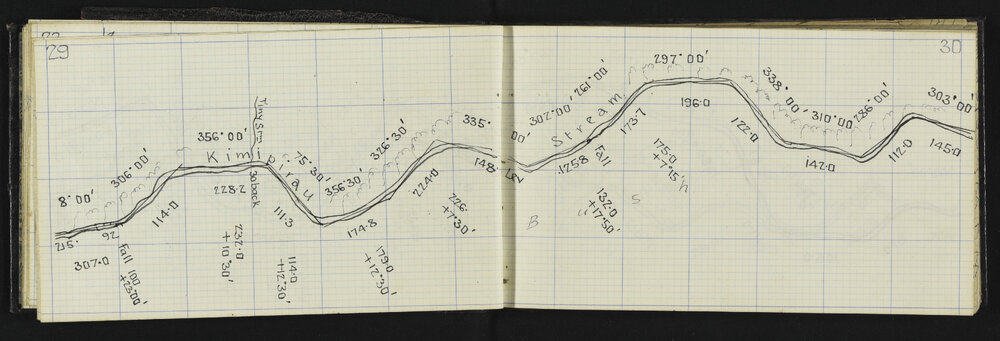 29
30
8°00'
306°00'
356°00'
Tiny Strm
75°30'
356°30'
326°30'
335°
00'
302°00'
261°00'
297°00'
338°00'
310°00'
286°00'
303°00'
Kimipirau
Stream
215.
92
114.0
228.2
30 back
111.3
174.8
224.0
148.
1258
Fall
173.7
196.0
122.0
142.0
112.0
145.0
307.0
Fall 100
+23°00'
232.0
+10°30'
114.0
+12°30'
179.0
+12°30'
226
+7°30'
132.0
+17°50'
175.0
+7°15'
B
u
S
h